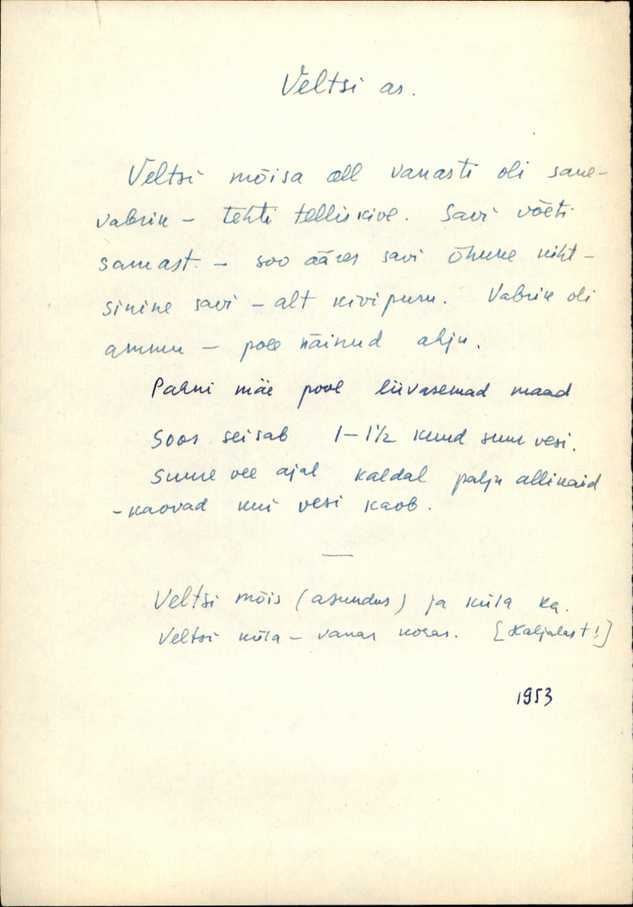 Veltsi as.
Veltsi mõisa all vanasti oli save-
vabrik – tehti telliskive. Savi võeti
samast. – soo ääres savi õhuke kiht –
sinine savi – alt kivipuru. Vabrik oli
ammu – pole näinud ahju.
Pahni mäe pool liivasemad maad
Soos seisab 1–1½ kuud suur vesi.
Suure vee ajal kaldal palju allikaid
– kaovad kui vesi kaob.
Veltsi mõis (asundus) ja küla ka.
Veltsi küla – vanas kohas. [Kaljulast!]
1953